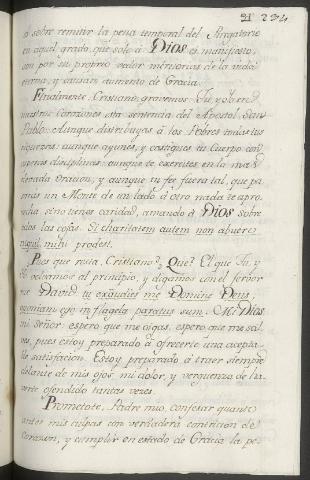 21 234
ó sobre remitir la pena temporal del Purgatorio
en aquel grado, que solo à Dios es manifiesto,
son por su proprio valor meritorias de la vida
eterna, y causan aumento de Gracia.
Finalmente, Cristiano, gravemos Tu, y Yo en
nuestros Corazones esta sentencia del Apostol San
Pablo: Aunque distribuyas à los Pobres todas tus
riquezas: aunque ayunes, y castigues tu Cuerpo con
disciplinas: aunque te exercites en la mas
elevada Oracion, y aunque tu fee fuera tal, que pa-
sarais un Monte de un lado à otro nada te apro-
vecha sino tienes caridad, amando à Dios sobre
todas las cosas. Si charitatem autem non abuero
nihil mihi prodest.
Pues que resta, Cristiano? Que? El que Tu, y
Yo volvamos al principio, y digamos con el fervor
de David: tu exaudies me Domine Deus,
quoniam ego in flagela paratus sum. Mi Dios
mi Señor: espero que me oigas, espero que me sal-
ves, pues estoy preparado à ofrecerte una acepta-
ble satisfacion. Estoy preparado à traer siempre
delante de mis ojos mi dolor, y verguenza de ha-
verte ofendido tantas veces.
Prometote, Padre mio, confesar quanto
antes mis culpas con verdadera contricion de
Corazon, y cumplir en estado de Gracia la pe-